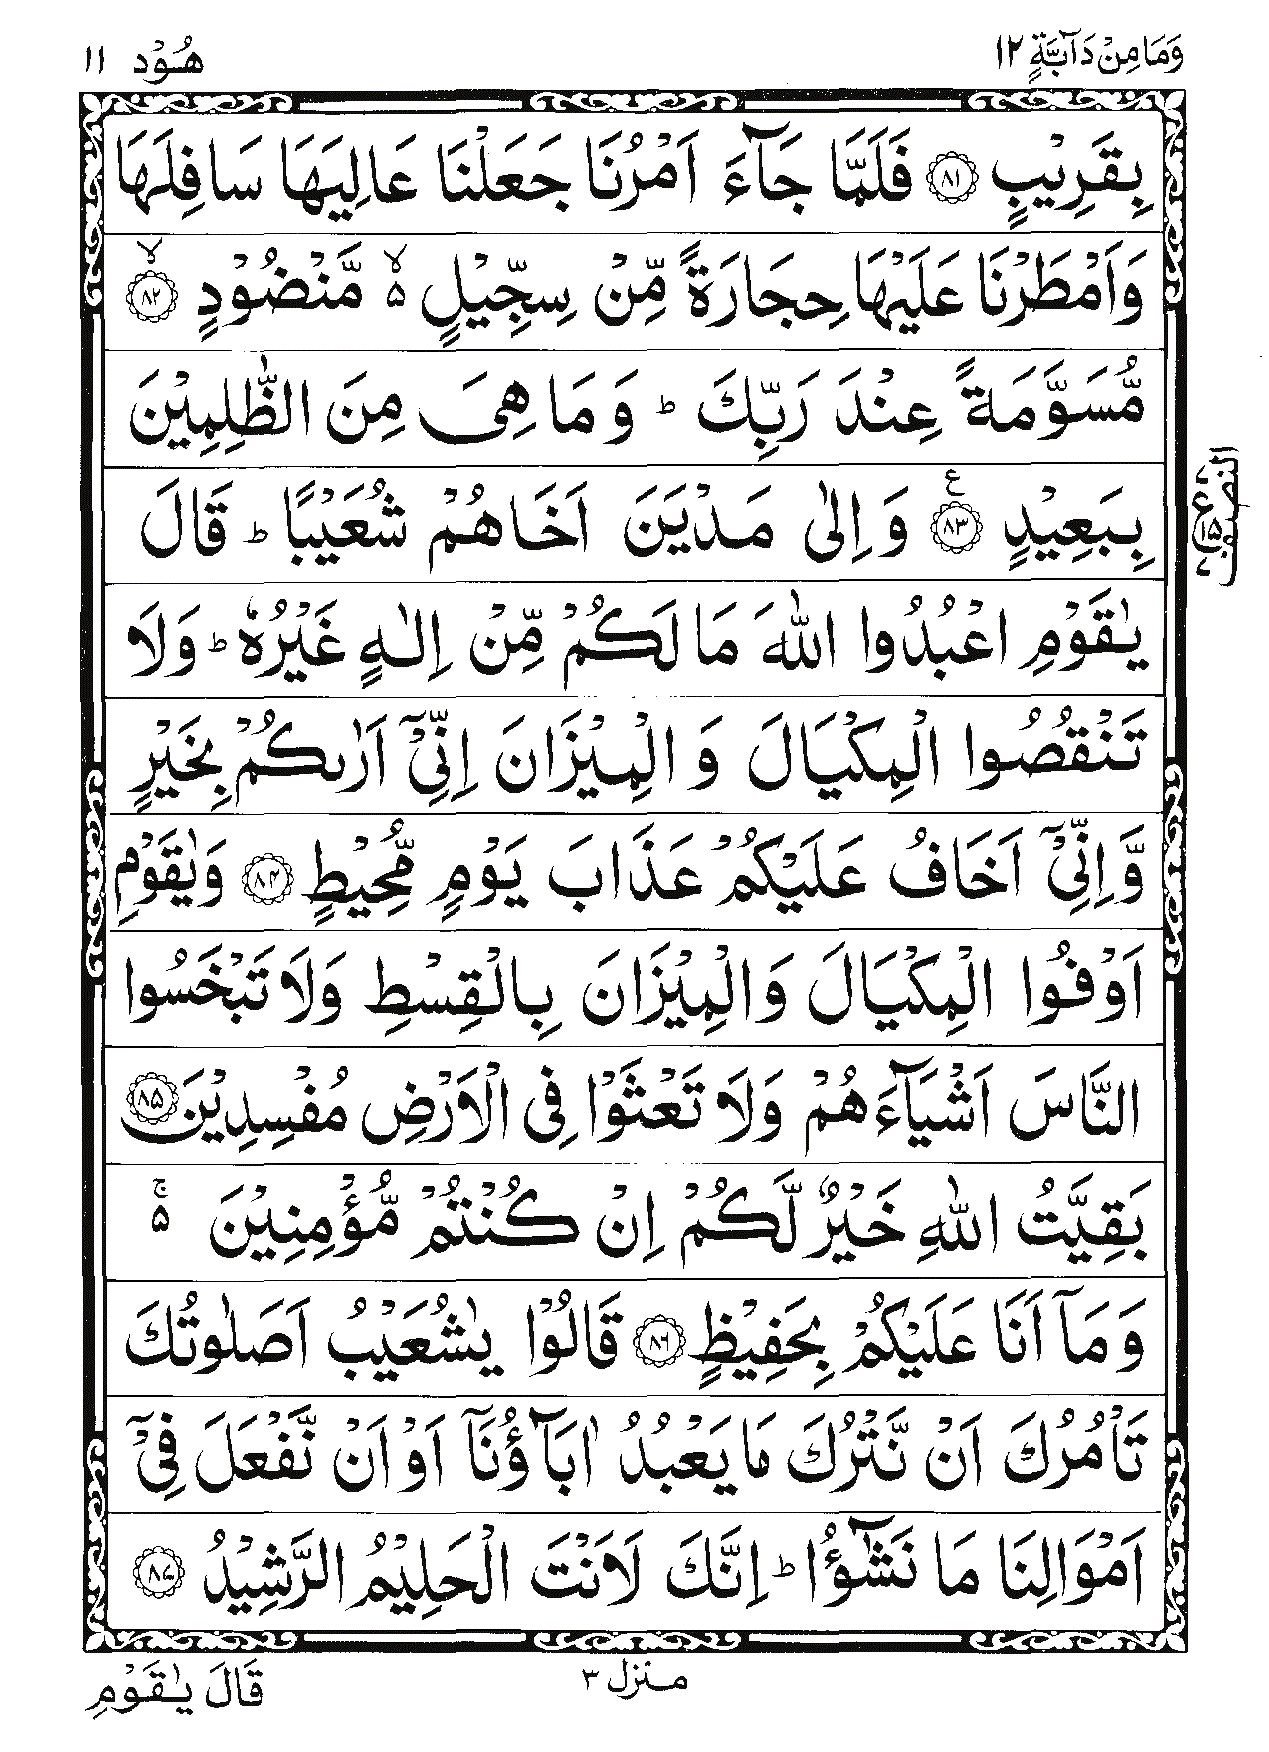 وَمَا مِنْ دَآبَّةٍ ١٢
هُوْد ١١
بِقَرِيْبٍ ﴿٨١﴾ فَلَمَّا جَآءَ اَمْرُنَا جَعَلْنَا عَالِيَهَا سَافِلَهَا
وَاَمْطَرْنَا عَلَيْهَا حِجَارَةً مِّنْ سِجِّيْلٍ ۙ۵ مَّنْضُوْدٍ ﴿٨٢﴾ ۙ
مُّسَوَّمَةً عِنْدَ رَبِّكَ ؕ وَ مَا هِىَ مِنَ الظّٰلِمِيْنَ
بِبَعِيْدٍ ﴿٨٣﴾ ع وَ اِلٰى مَدْيَنَ اَخَاهُمْ شُعَيْبًا ؕ قَالَ
النصف
ع ١٥
يٰقَوْمِ اعْبُدُوا اللّٰهَ مَا لَكُمْ مِّنْ اِلٰهٍ غَيْرُهٗ ؕ وَلَا
تَنْقُصُوا الْمِكْيَالَ وَ الْمِيْزَانَ اِنِّىْۤ اَرٰىكُمْ بِخَيْرٍ
وَّاِنِّىْۤ اَخَافُ عَلَيْكُمْ عَذَابَ يَوْمٍ مُّحِيْطٍ ﴿٨٤﴾ وَيٰقَوْمِ
اَوْفُوا الْمِكْيَالَ وَالْمِيْزَانَ بِالْقِسْطِ وَلَا تَبْخَسُوا
النَّاسَ اَشْيَآءَهُمْ وَلَا تَعْثَوْا فِى الْاَرْضِ مُفْسِدِيْنَ ﴿٨٥﴾
بَقِيَّتُ اللّٰهِ خَيْرٌ لَّكُمْ اِنْ كُنْتُمْ مُّؤْمِنِيْنَ ۚ۵
وَ مَاۤ اَنَا عَلَيْكُمْ بِحَفِيْظٍ ﴿٨٦﴾ قَالُوْا يٰشُعَيْبُ اَصَلٰوتُكَ
تَاْمُرُكَ اَنْ نَّتْرُكَ مَا يَعْبُدُ اٰبَآؤُنَاۤ اَوْ اَنْ نَّفْعَلَ فِىْۤ
اَمْوَالِنَا مَا نَشٰٓؤُا ؕ اِنَّكَ لَاَنْتَ الْحَلِيْمُ الرَّشِيْدُ ﴿٨٧﴾
منزل ٣
قَالَ يٰقَوْمِ